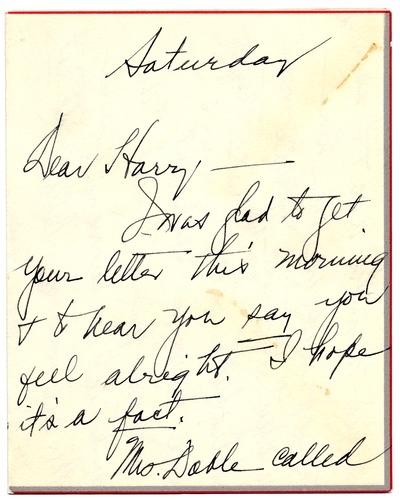 Saturday
Dear Harry —
I was glad to get
your letter this morning
& to hear you say you
feel alright. I hope
it's a fact.
Mrs. Doble called